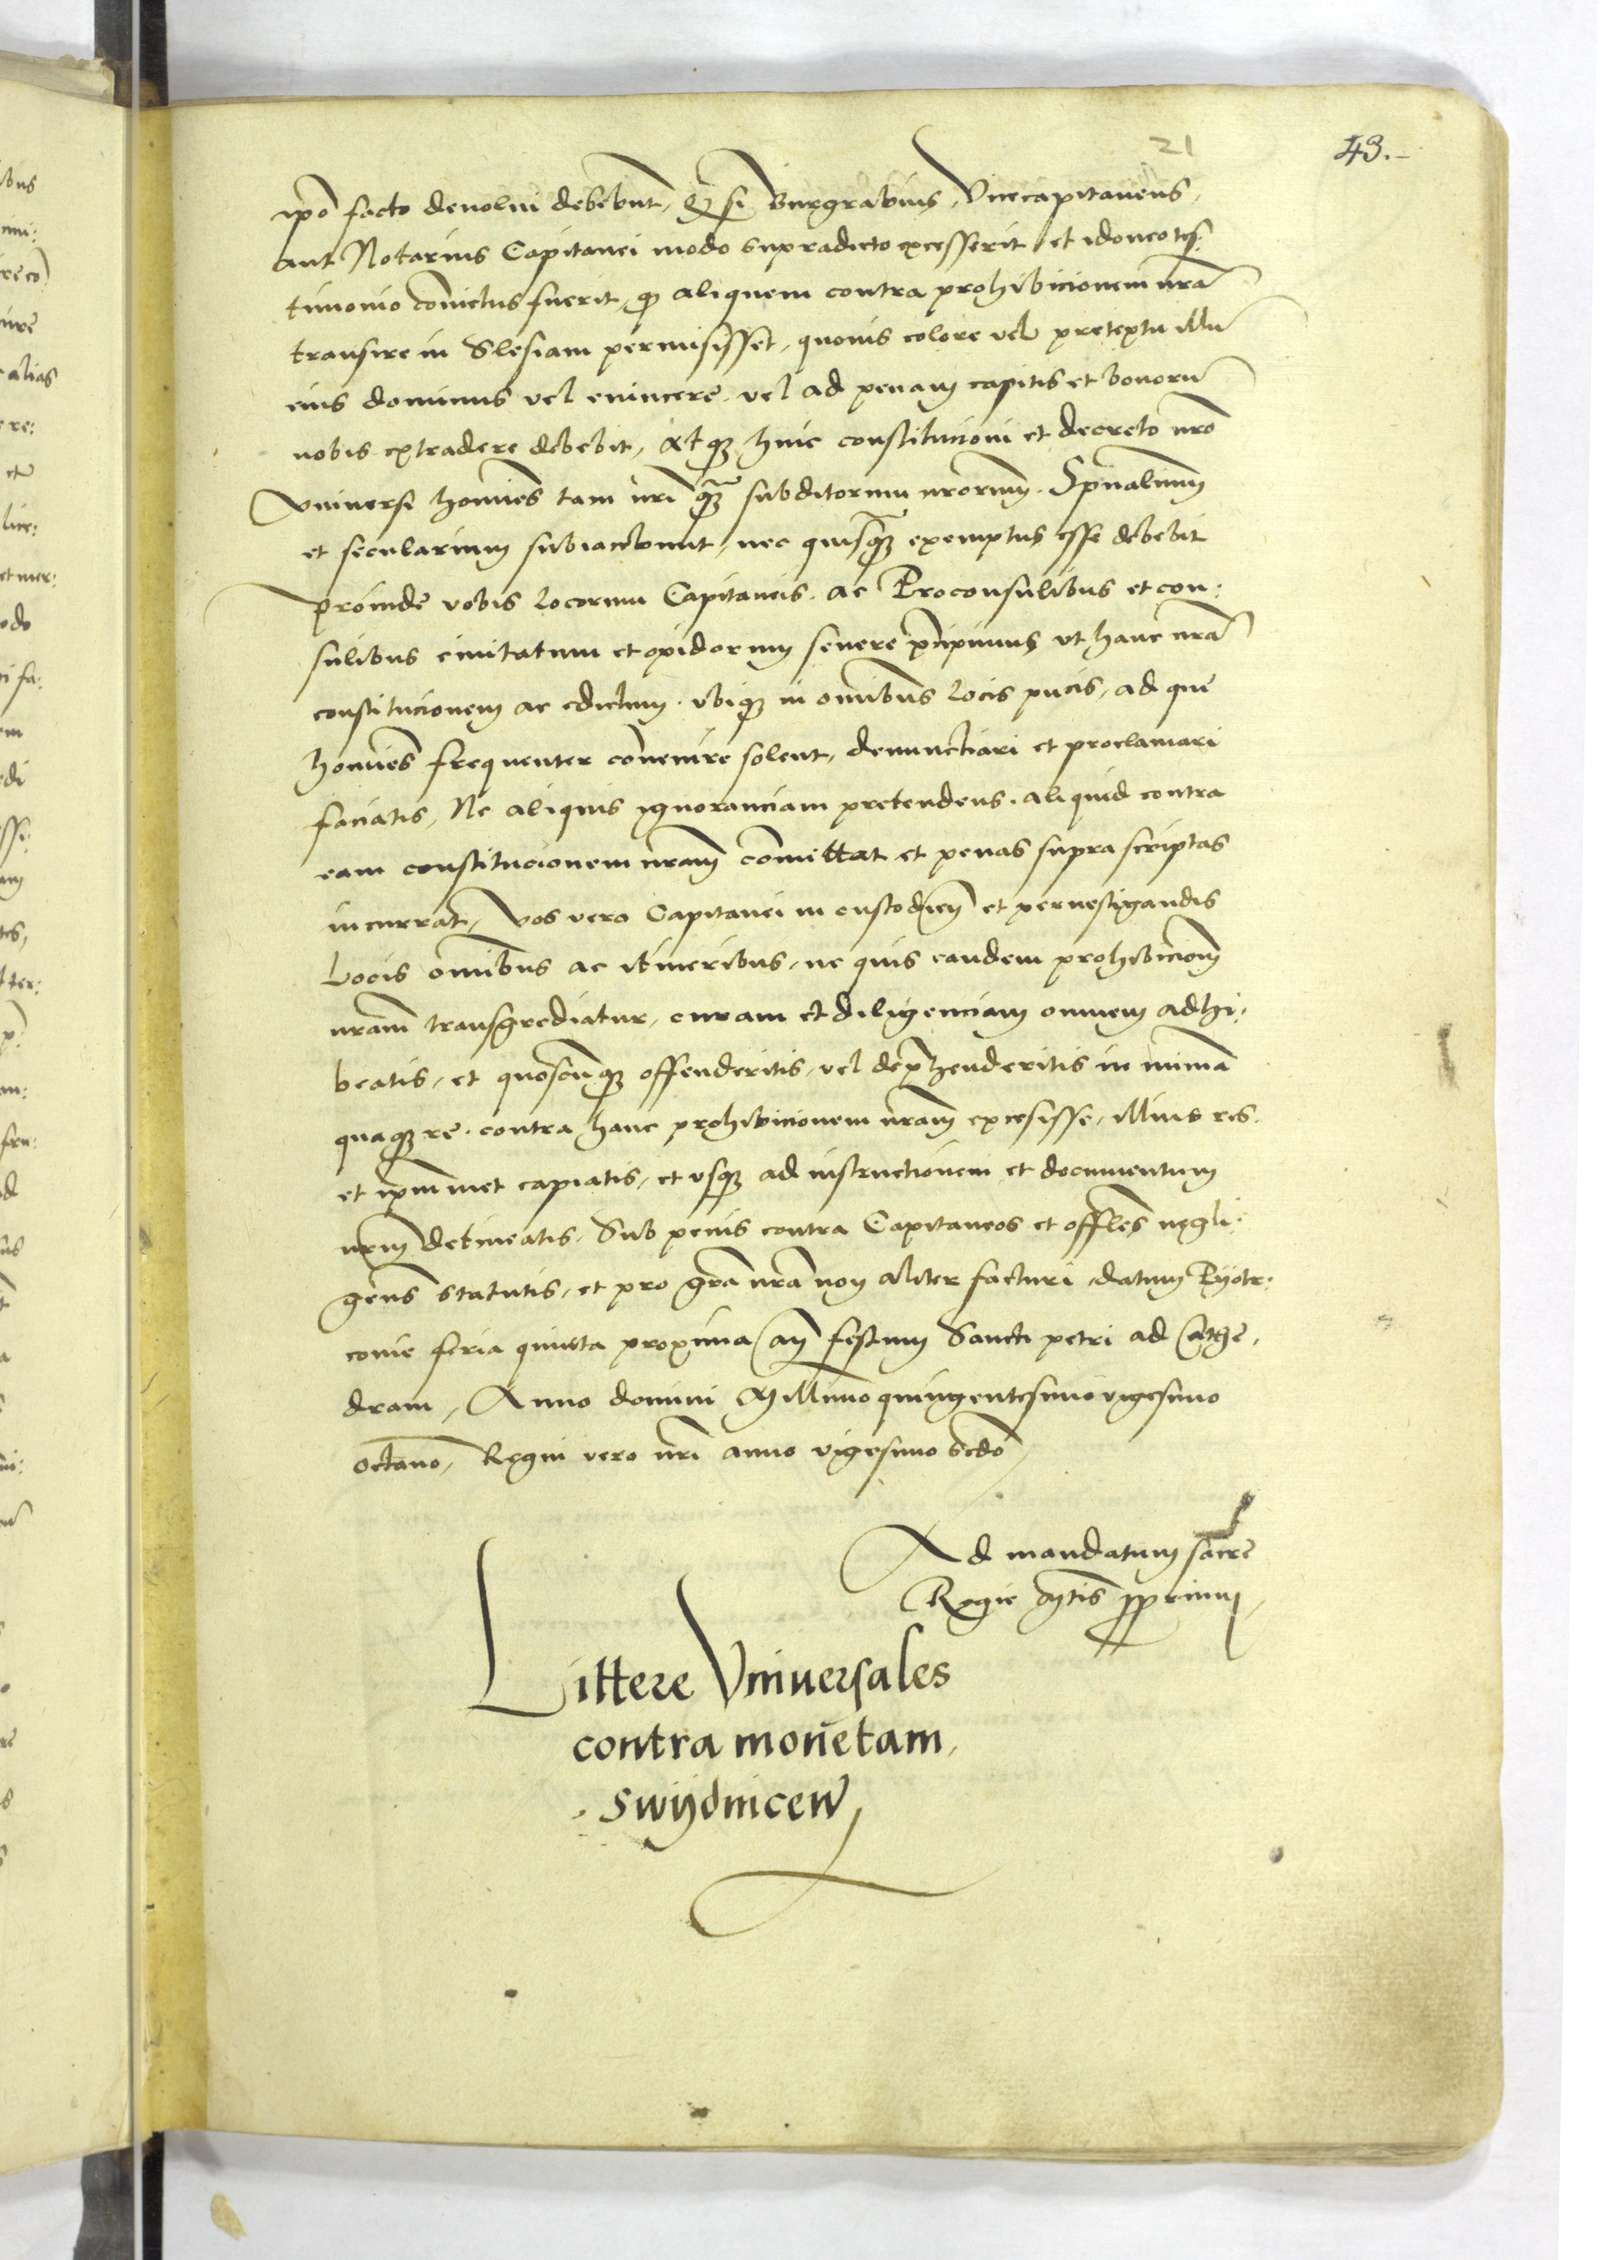 21
43.-
ipō facto deuolui debebunt, Q si Burgrabius, Vicecapitaneus,
aut Notarius Capitanei modo supradicto excesserit, et idoneo tes-
timonio cōvictus fuerit, qͦ aliquem contra prohibicionem nrā
transire in Slesiam permisisset, quouis colore vel pretextu illū
eius dominus vel euincere, vel ad penam capitis et bonorū
nobis extradere debebit, Atqꝫ huic constitucioni et decreto nrō
Vniuersi homīes tam nrī qꝫ subditorum nrorum, Spūalium
et secularium subiacebunt, nec quisqꝫ exemptus esse debebit
Proinde vobis locorum Capitaneis, ac Proconsulibus et con:
sulibus ciuitatum et opidorum seuere p̄cipimus vt hanc nrā
constitucionem ac edictum, vbiqꝫ in om̄ibus locis pūcis, ad que
homīes frequenter cōuenire solent, denunctiari et proclamari
faciatis, Ne aliquis ignoranciam pretendens, aliquid contra
eam constitucionem nrām cōmittat et penas suprascriptas
incurrat, Vos vero Capitanei in custodien̄ et peruestigandis
Locis om̄ibus ac itineribus, ne quis eandem prohibicionem
nrām transgrediatur, curam et diligenciam omnem adhi:
beatis, et quoscūqꝫ offenderitis, vel dep̄henderitis in nimīa
quaqꝫ re, contra hanc prohibicionem nrām excesisse, illius res
et ipm̄met capiatis, et vsqꝫ ad instructionem et documentum
nrm̄ detineatis, Sub penis contra Capitaneos et offles̄ negli:
gens̄ statutis, et pro grā nrā non aliter facturi, datum Pyotr:
couie feria quinta proxima an̄ festum Sancti petri ad Cathe,
dram, Anno domini Millimo quingentesimo vigesimo
octauo, Regni vero nrī anno vigesimo scdō
Ad mandatum sacre
Regie Mtīs pprium
Littere Vniuersales
contra monetam
Swydnicen̄